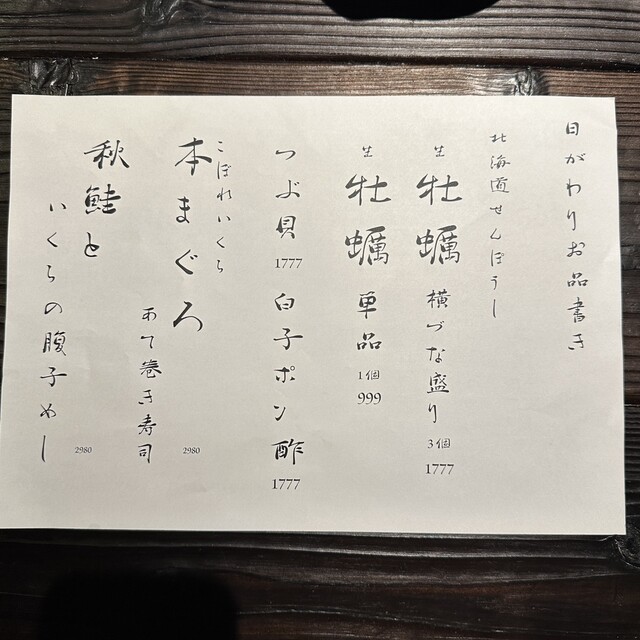 日がわりお品書き
北海道せんぽうし
生牡蠣 横づな盛り 3個 1777
生牡蠣 単品 1個 999
つぶ貝 1777
白子ポン酢 1777
こぼれいくら
本まぐろ
あて巻き寿司 2980
秋鮭と
いくらの腹子めし 2980